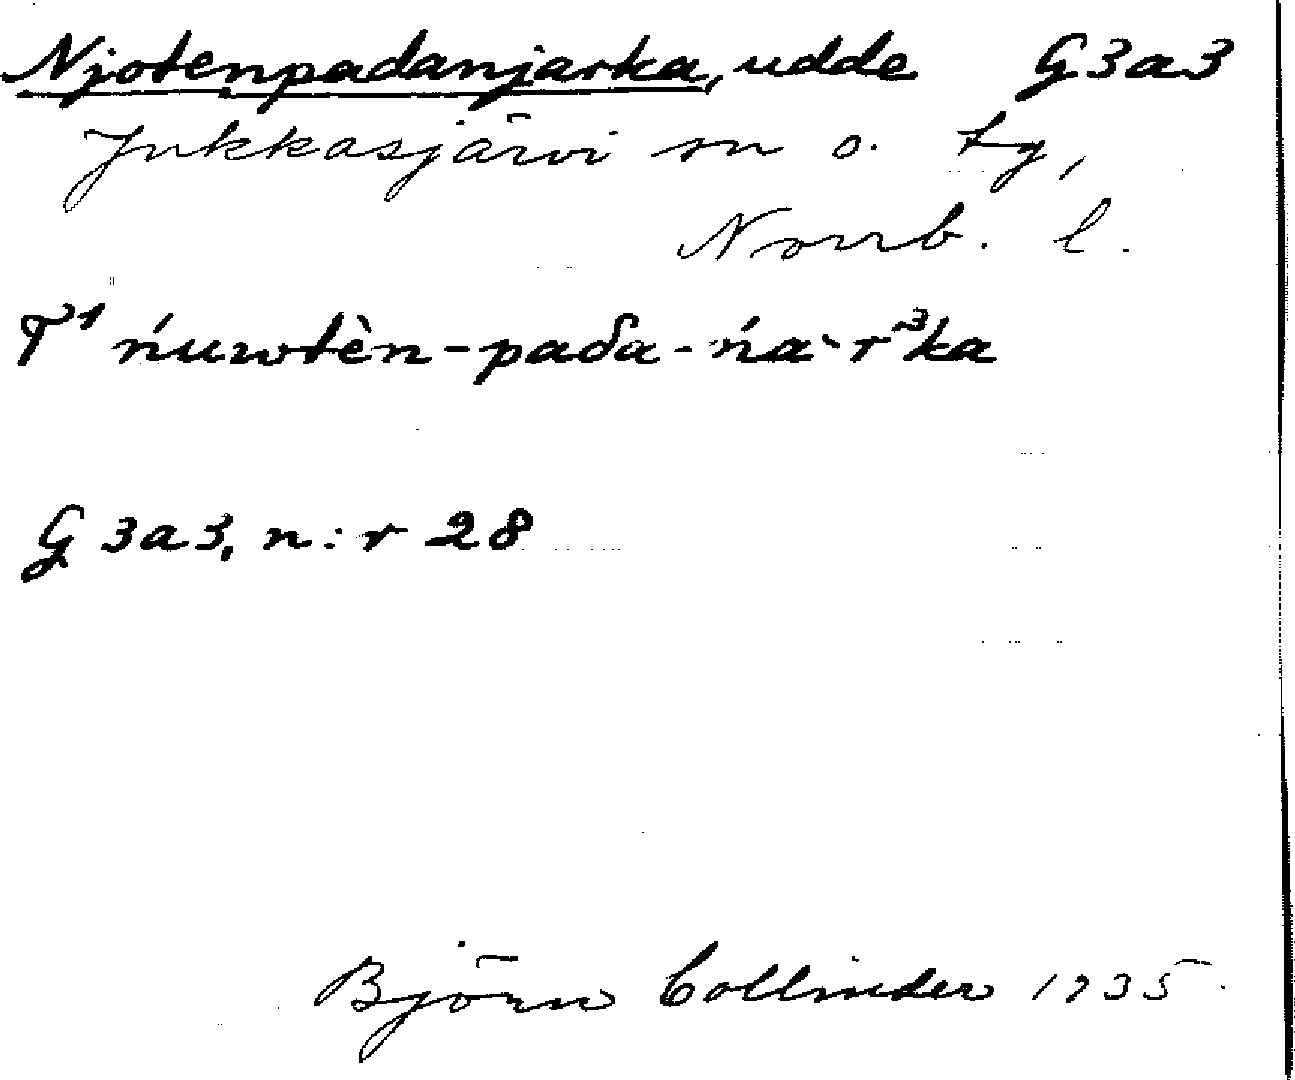 Njotenpadanjarka, udde G3a3
Jukkasjärvi sn o. tg,
Norrb. l.
T¹ ńuwtèn-paδa-ńa`r³ka
G 3a3, n:r 28
Björn Collinder 1935.